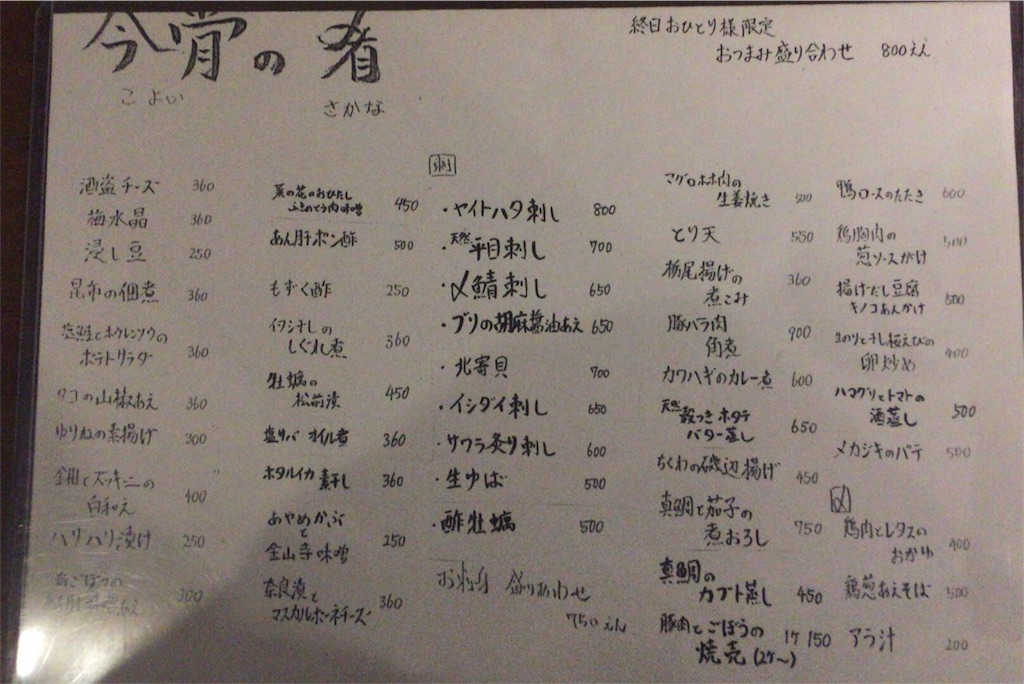 今宵の肴
こよい
さかな
終日おひとり様限定
おつまみ盛り合わせ 800えん
酒盗チーズ 360
梅水晶 360
浸し豆 250
昆布の佃煮 360
塩鮭とホウレンソウの
ポテトサラダ 360
タコの山椒あえ 360
ゆりねの素揚げ 300
ズッキーニの
白和え 400
ハリハリ漬け 250
300
菜の花のおひたし
ふきのとう肉味噌 450
あん肝ポン酢 500
もずく酢 250
イワシ干しの
しぐれ煮 360
牡蠣の
松前漬 450
塩サバ オイル煮 360
ホタルイカ 素干し 360
あやめかぶ
と
金山寺味噌 250
奈良漬と
マスカルポーネチーズ 360
刺
・ヤイトハタ刺し 800
・天然平目刺し 700
・〆鯖刺し 650
・ブリの胡麻醤油あえ 650
・北寄貝 700
・イシダイ刺し 650
・サワラ炙り刺し 600
・生ゆば 500
・酢牡蠣 500
お刺身 盛りあわせ
750えん
マグロホホ肉の
生姜焼き 500
とり天 550
栃尾揚げの
煮こみ 360
豚バラ肉
角煮 900
カワハギのカレー煮 600
天然 殻つきホタテ
バター蒸し 650
ちくわの磯辺揚げ 450
真鯛と茄子の
煮おろし 750
真鯛の
カブト蒸し 450
豚肉とごぼうの
焼売(2ケ〜) 1ケ 150
鴨ロースのたたき 600
鶏胸肉の
葱ソースがけ 500
揚げだし豆腐
キノコあんかけ 500
干し桜えびの
卵炒め 400
ハマグリとトマトの
酒蒸し 500
メカジキのパテ 500
〆
鶏肉とレタスの
おかゆ 400
鶏葱あえそば 500
アラ汁 200